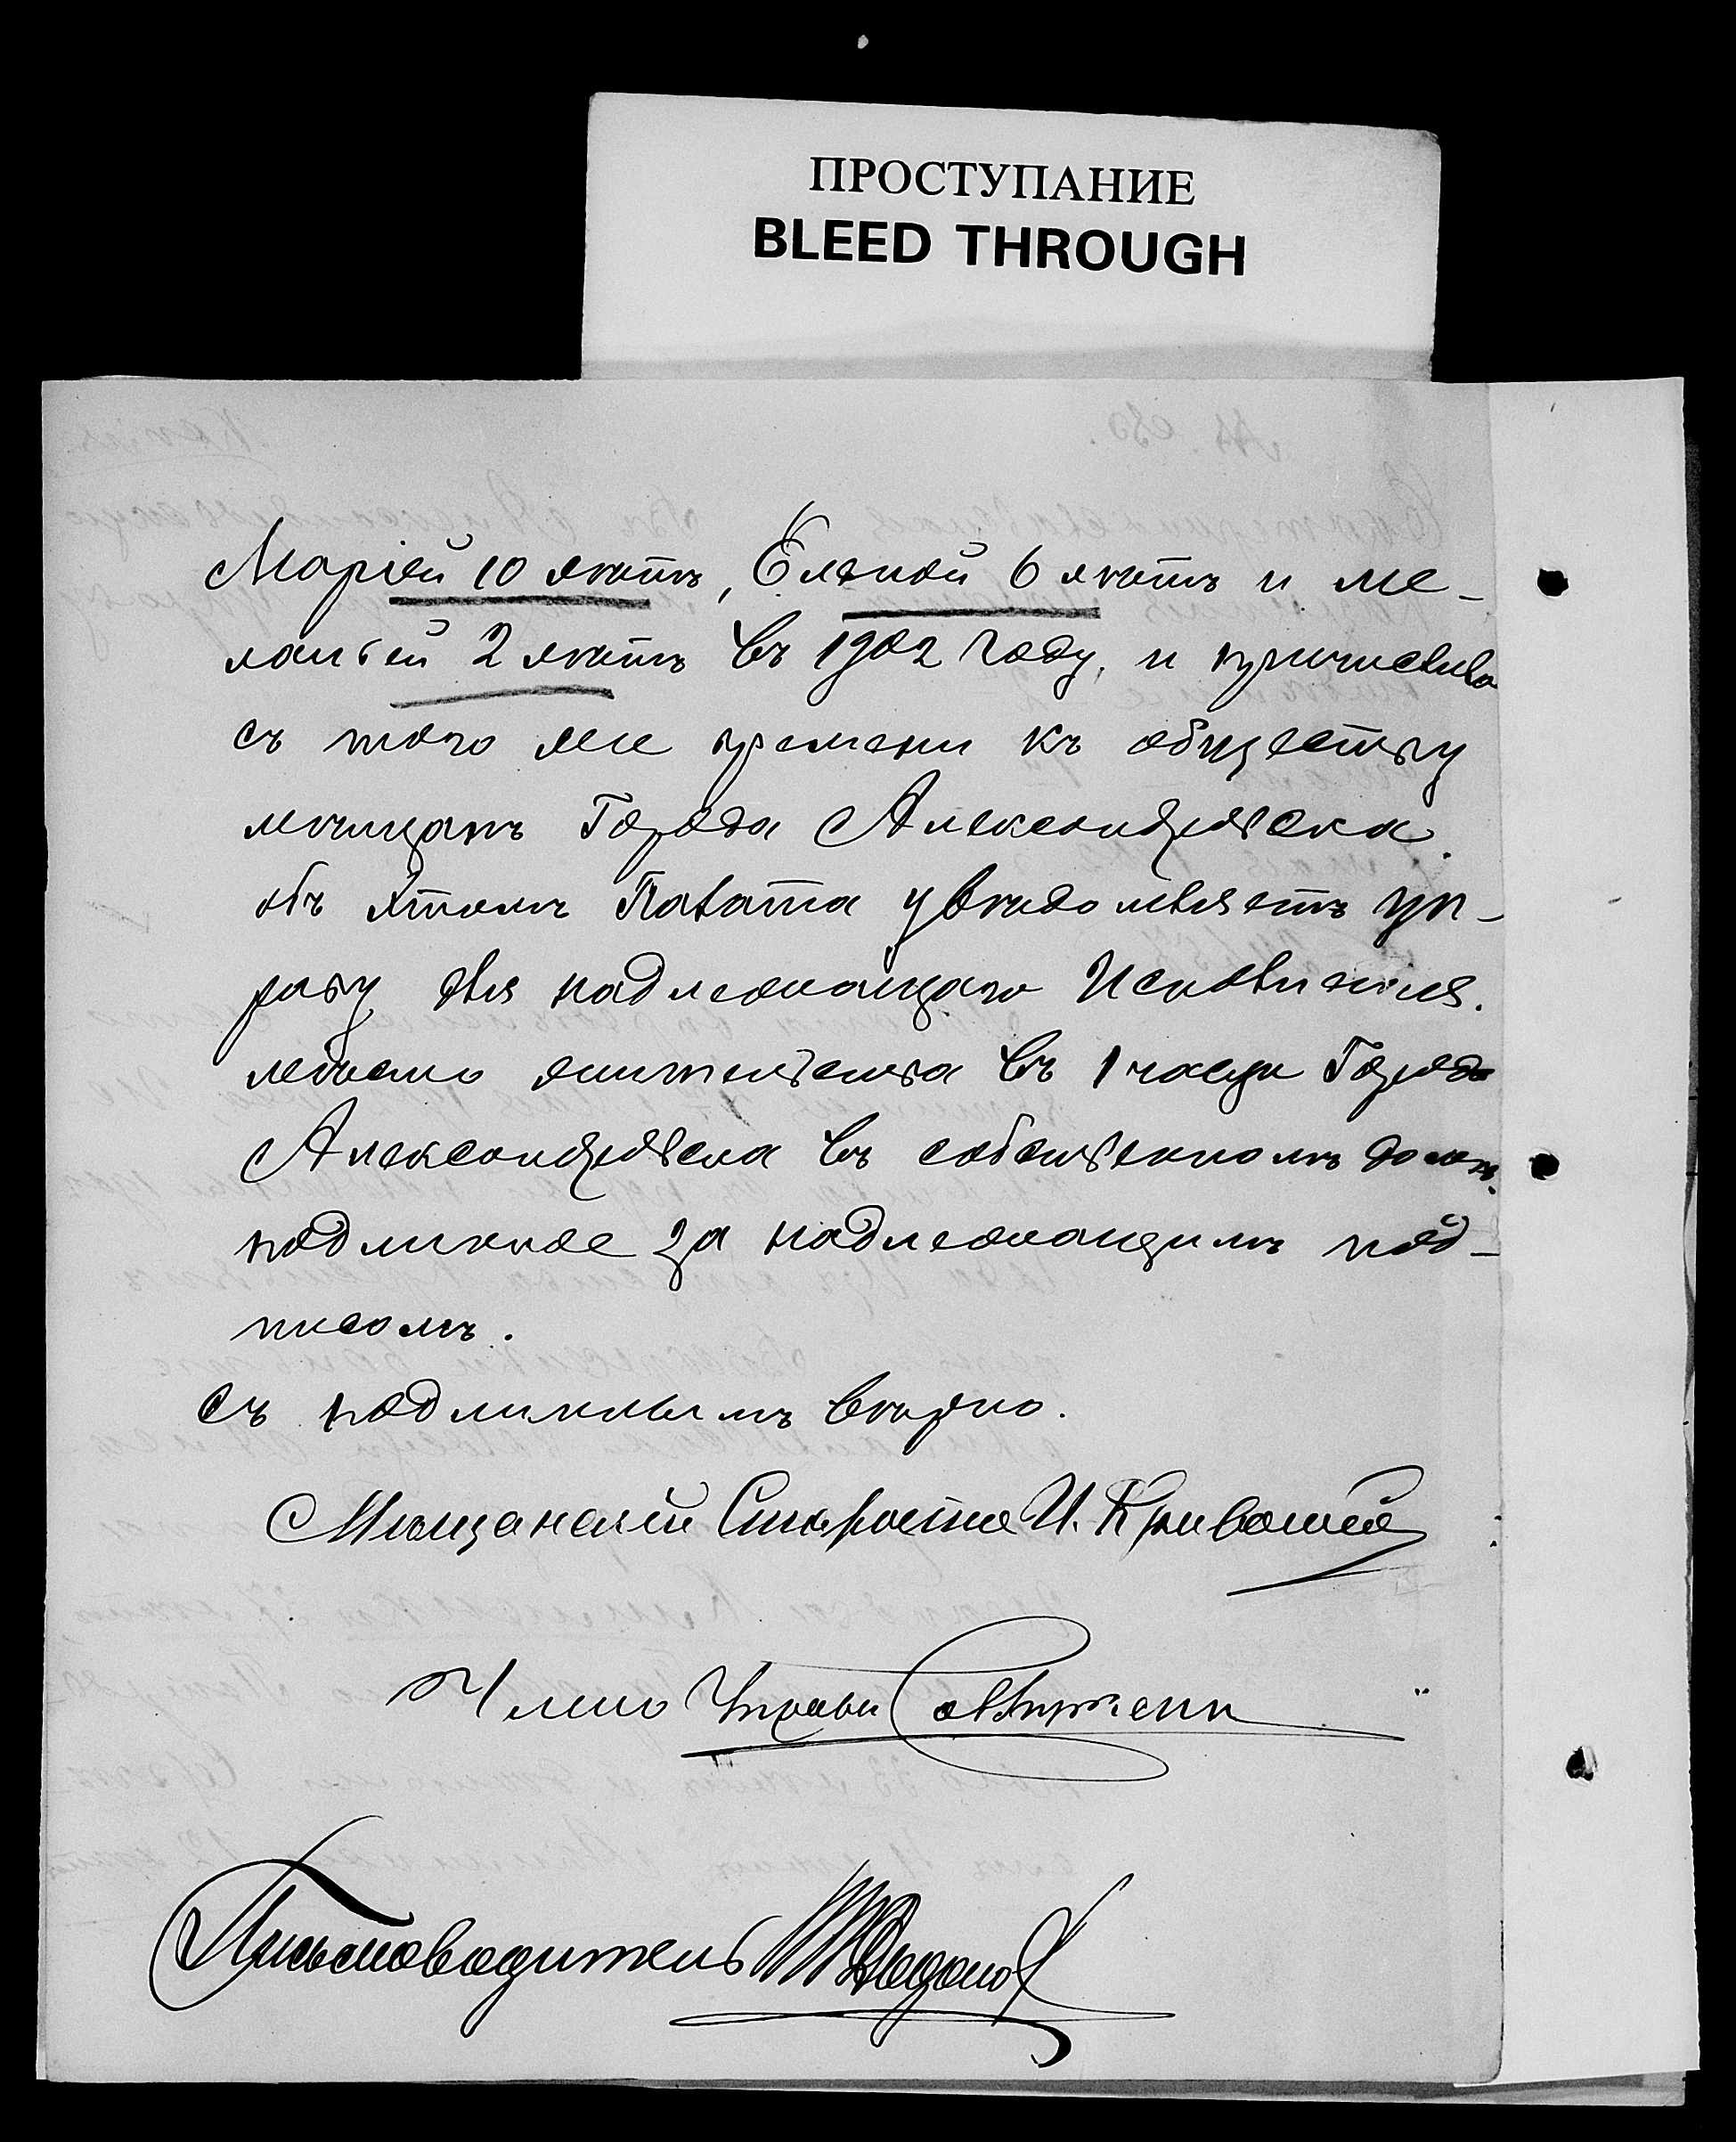 ПРОСТУПАНИЕ
BLEED THROUGH
Маріей 10 лѣтъ, Еленой 6 лѣтъ и ме-
ланьей 2 лѣтъ въ 1902 году, и причислила
съ того же времени къ обществу
мѣщанъ Города Александровска.
объ этомъ Палата увѣдомляетъ уп-
раву для надлежащаго Исполненія.
мѣсто жительства въ 1 части Города
Александровска въ собственномъ домѣ.
подлинное за надлежащимъ под-
писомъ.
съ подлиннымъ вѣрно.
Мѣщанскій Староста И. Кривошей
Членъ Управы
Письмоводитель